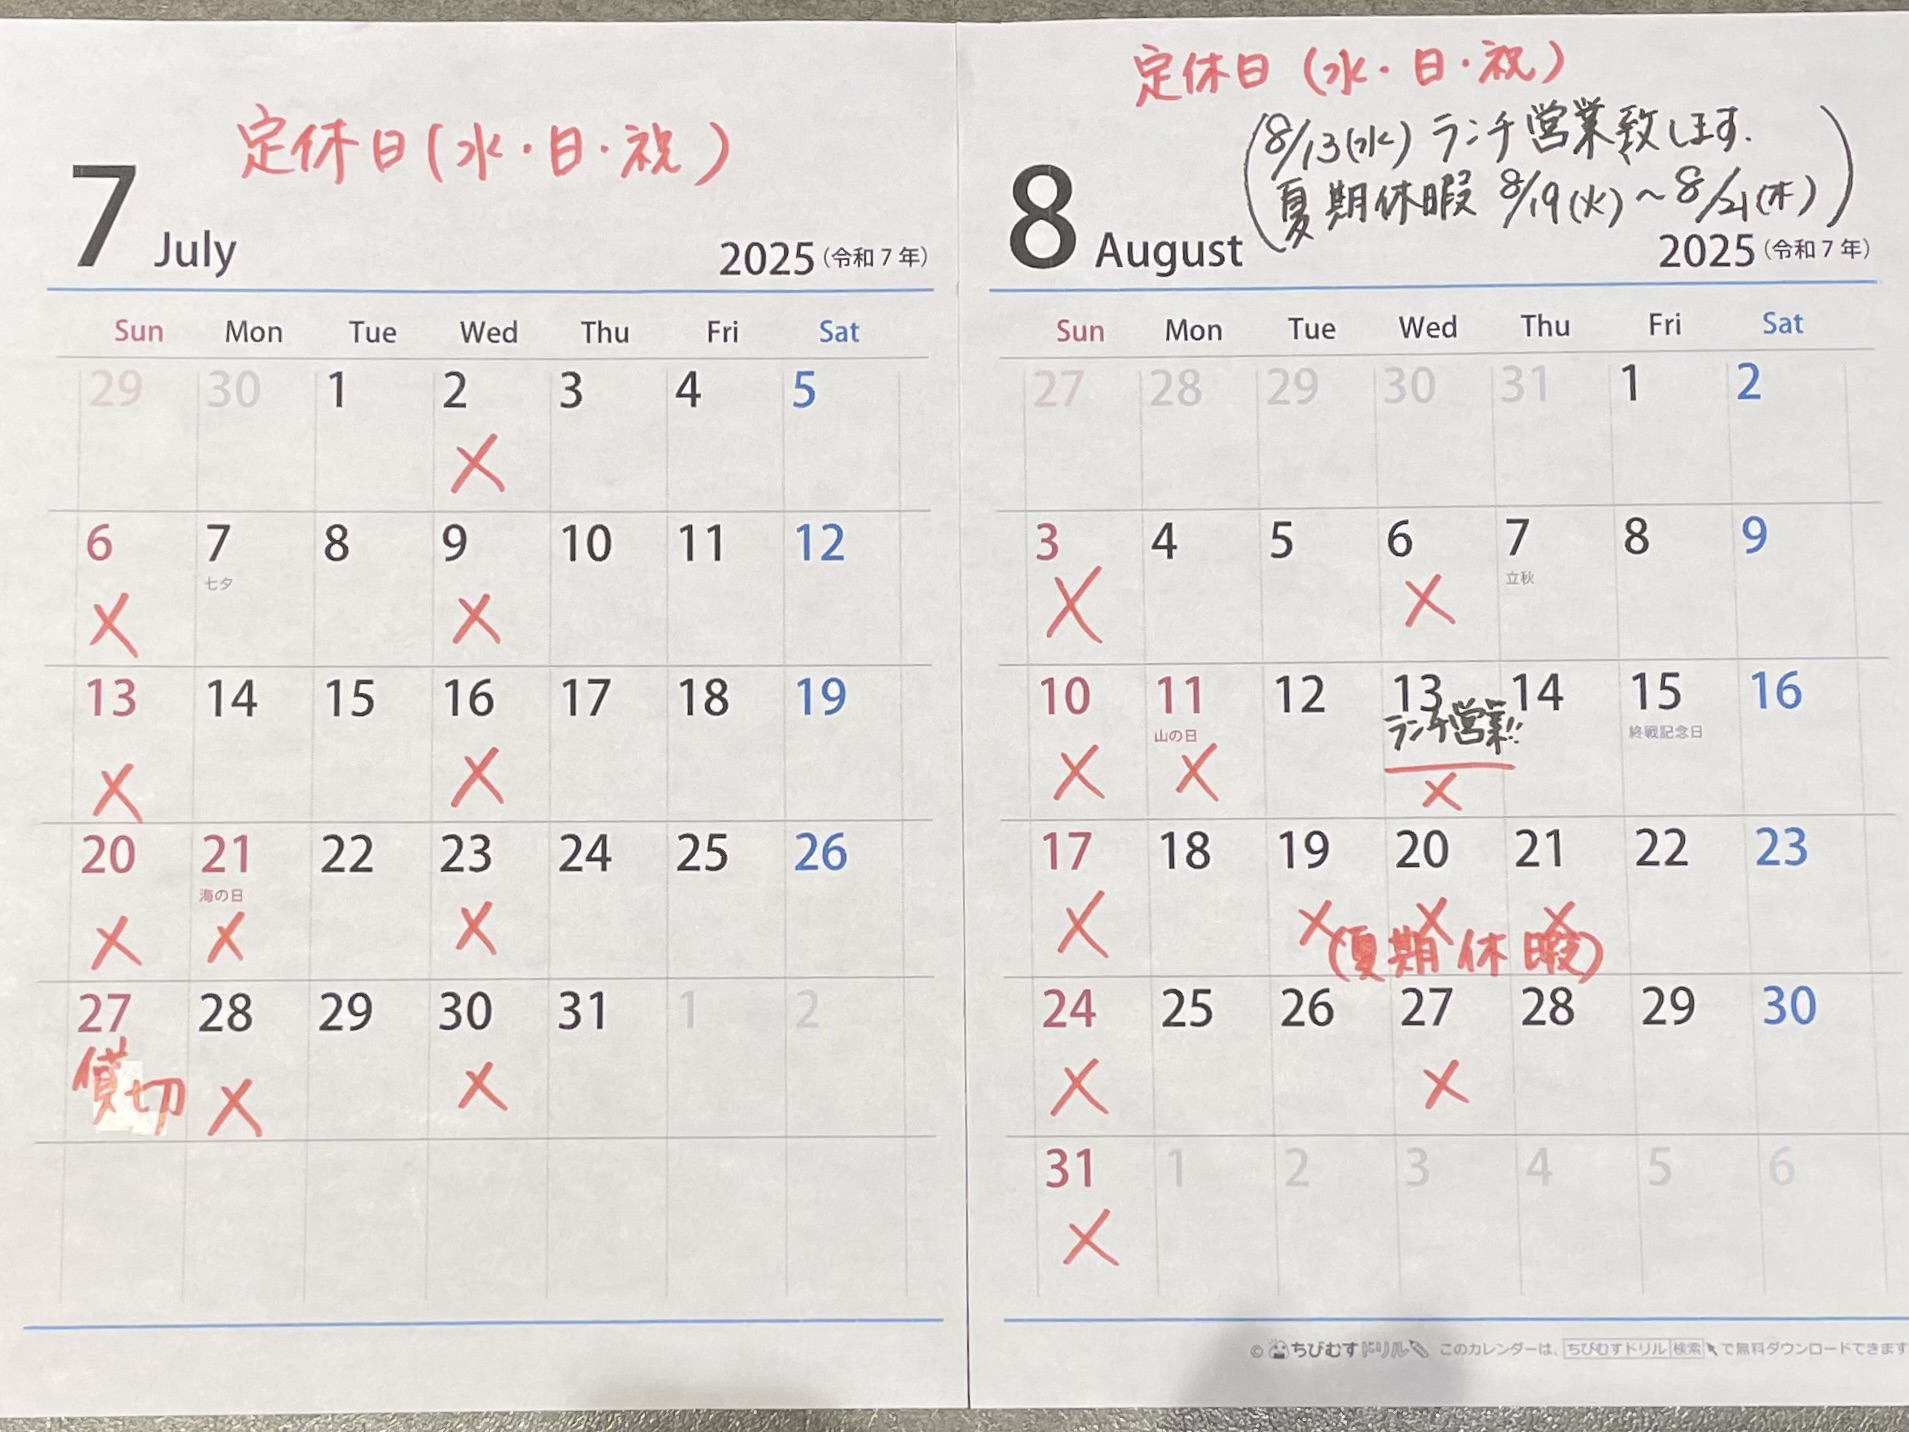 定休日(水・日・祝)
7 July 2025(令和7年)
Sun Mon Tue Wed Thu Fri Sat
29 30 1 2 3 4 5
×
6 7 8 9 10 11 12
七夕
× ×
13 14 15 16 17 18 19
× ×
20 21 22 23 24 25 26
海の日
× × ×
27 28 29 30 31 1 2
貸切 × ×
定休日(水・日・祝)
(8/13(水)ランチ営業致します.
夏期休暇 8/19(火)~8/21(木))
8 August 2025(令和7年)
Sun Mon Tue Wed Thu Fri Sat
27 28 29 30 31 1 2
3 4 5 6 7 8 9
立秋
× ×
10 11 12 13 14 15 16
山の日 ランチ営業!! 終戦記念日
× × ×
17 18 19 20 21 22 23
× × × ×
(夏期休暇)
24 25 26 27 28 29 30
× ×
31 1 2 3 4 5 6
×
© ちびむすドリル このカレンダーは、ちびむすドリル 検索 で無料ダウンロードできます